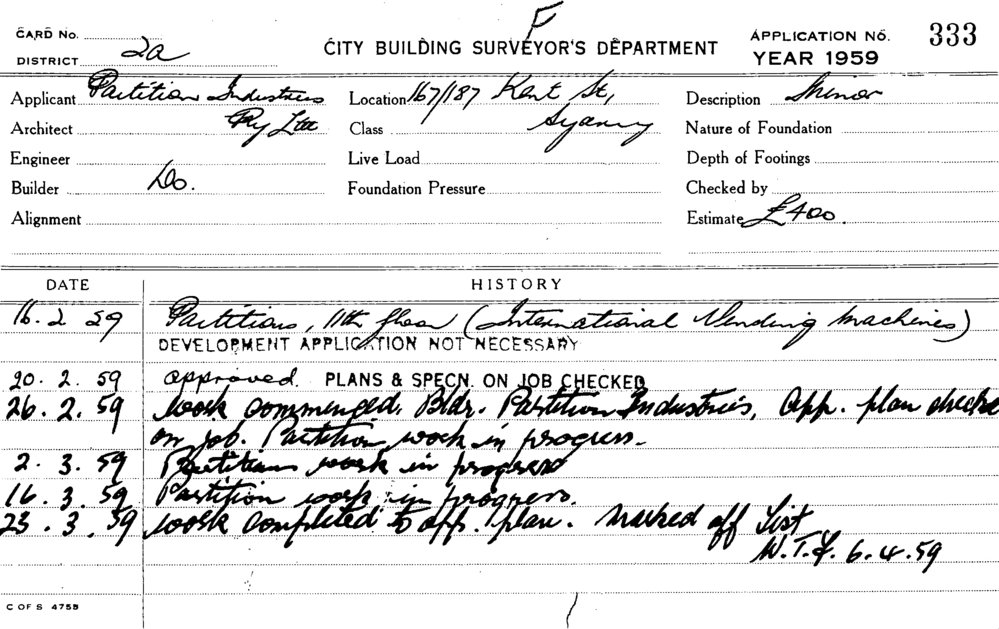 F
CARD No.
DISTRICT 2a
CITY BUILDING SURVEYOR'S DEPARTMENT
APPLICATION No. 333
YEAR 1959
Applicant Partition Industries
Pty Ltd
Location 167/187 Kent St,
Sydney
Description Minor
Architect
Class
Nature of Foundation
Engineer
Live Load
Depth of Footings
Builder Do.
Foundation Pressure
Checked by
Alignment
Estimate £400.
DATE HISTORY
16.2 59 Partitions, 11th floor (International Vending Machines)
DEVELOPMENT APPLICATION NOT NECESSARY
20.2.59 approved. PLANS & SPECN. ON JOB CHECKED
26.2.59 work commenced. Bldr. Partition Industries, App. plan checked
on job. Partition work in progress.
2.3.59 Partition work in progress
16.3.59 Partition work in progress.
23.3.59 work completed to app. plan. Marked off List
6.4.59
C OF S 475B